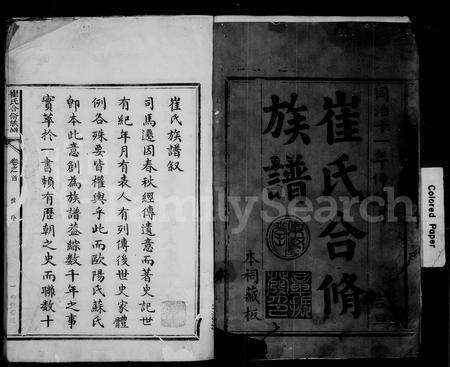 同治十
崔氏合脩
族譜
本祠藏板
崔氏族譜叙
司馬遷因春秋經傳遺意而著史記世
有紀年月有表人有列傳後世史家體
例各殊要皆權輿乎此而歐陽氏蘇氏
即本此意創為族譜益綜數千年之事
實萃於一書賴有歷朝之史而聯數十
崔氏合脩族譜
卷之首
FamilySearch
Colored Paper